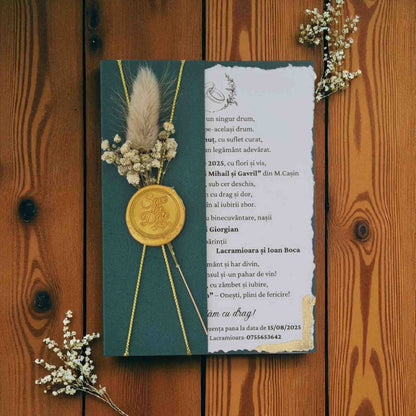 un singur drum,
pe-același drum.
nuț, cu suflet curat,
m legământ adevărat.
2025, cu flori și vis,
i Mihail și Gavril” din M.Cașin
, sub cer deschis,
m cu drag și dor,
în al iubirii zbor.
u binecuvântare, nașii
i Giorgian
părinții
Lacramioara și Ioan Boca
mânt și har divin,
nsul și-un pahar de vin!
, cu zâmbet și iubire,
” – Onești, plini de fericire!
ăm cu drag!
uența pana la data de 15/08/2025
Lacramioara-0755653642